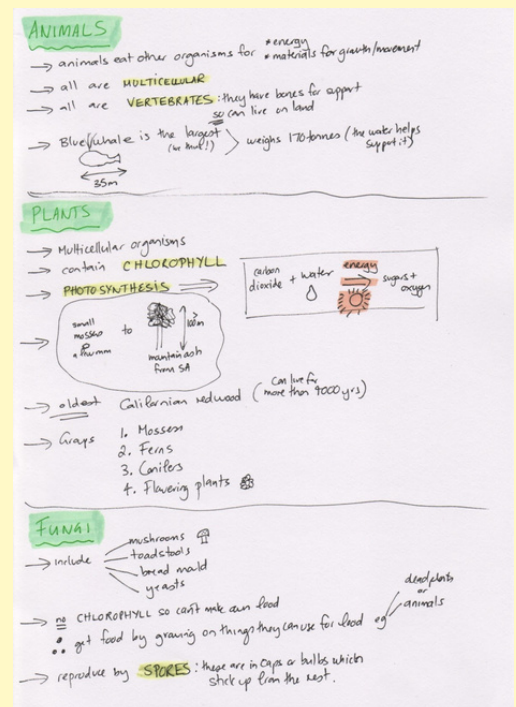 ANIMALS
→ animals eat other organisms for * energy
* materials for growth/movement
→ all are MULTICELLULAR
→ all are VERTEBRATES: they have bones for support
so can live on land
→ Blue Whale is the largest
(we think!)
weighs 170 tonnes (the water helps
support it)
35m
PLANTS
→ Multicellular organisms
→ contain CHLOROPHYLL
→ PHOTOSYNTHESIS
carbon
dioxide + water energy sugars +
oxygen
→ small
mosses to 100m
mountain ash
from SA
→ oldest Californian redwood (can live for
more than 4000 yrs)
→ Groups 1. Mosses
2. Ferns
3. Conifers
4. Flowering plants
FUNGI
→ include mushrooms
toadstools
bread mould
yeasts
→ no CHLOROPHYLL so can't make own food
∴ get food by growing on things they can use for food eg dead plants
or
animals
→ reproduce by SPORES: these are in caps or bulbs which
stick up from the rest.